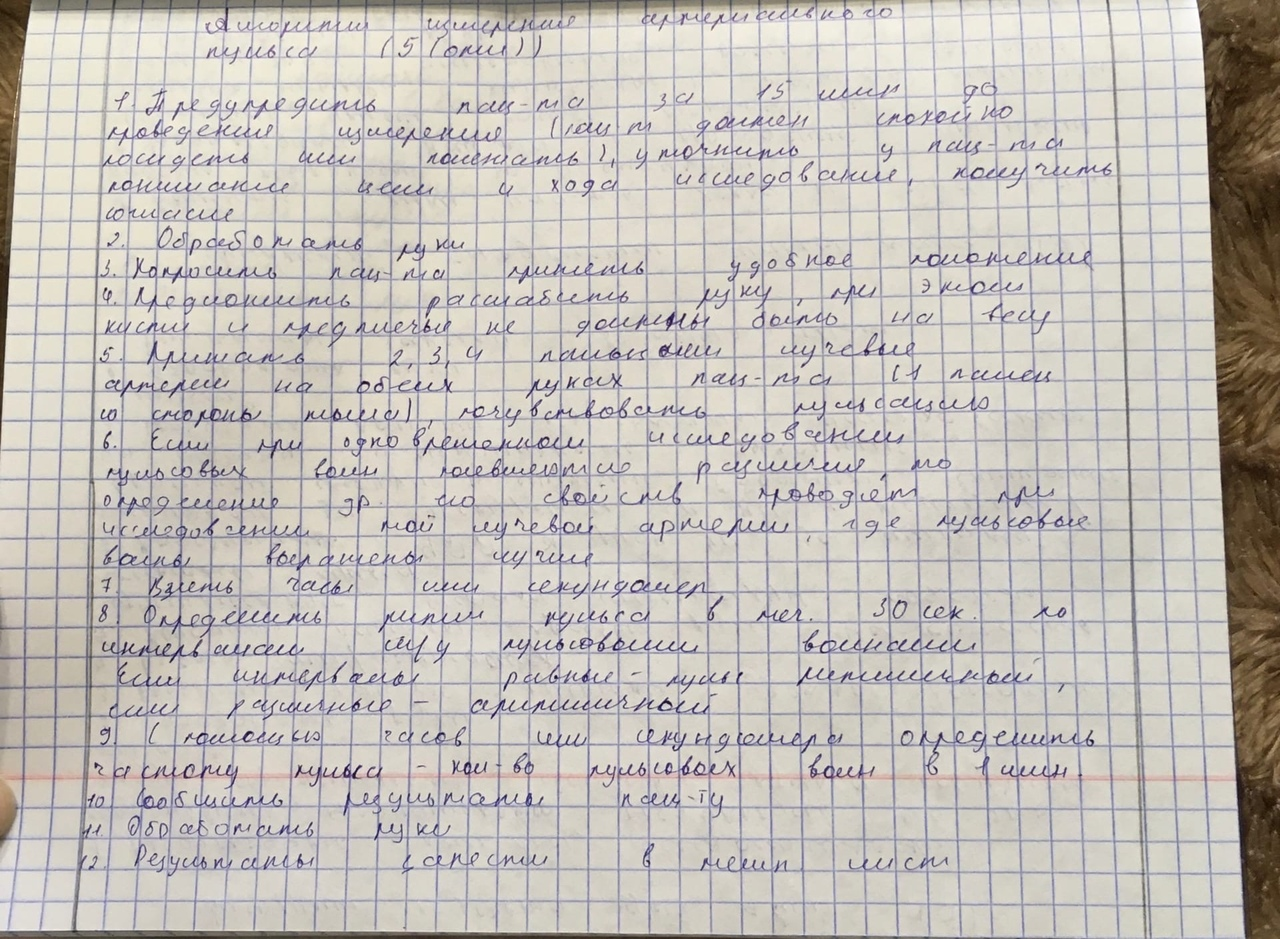 Алгоритм измерения артериального
пульса (5 (опк))
1. Предупредить пац-та за 15 мин до
проведения измерения (пац-т должен спокойно
посидеть или полежать), уточнить у пац-та
понимание цели и хода исследования, получить
согласие
2. Обработать руки
3. Попросить пац-та принять удобное положение
4. Предложить расслабить руку, при этом
кисти и предплечья не должны быть на весу
5. Прижать 2, 3, 4 пальцами лучевые
артерии на обеих руках пац-та (1 палец
со стороны тыла), почувствовать пульсацию
6. Если при одновременном исследовании
пульсовых волн появляются различия, то
определение др. его свойств проводят при
исследовании той лучевой артерии, где пульсовые
волны выражены лучше
7. Взять часы или секундомер
8. Определить ритм пульса в теч. 30 сек. по
интервалам м/у пульсовыми волнами
Если интервалы равные - пульс ритмичный,
если различные - аритмичный
9. С помощью часов или секундомера определить
частоту пульса - кол-во пульсовых волн в 1 мин.
10 Сообщить результаты пац-ту
11. Обработать руки
12. Результаты занести в темп. лист